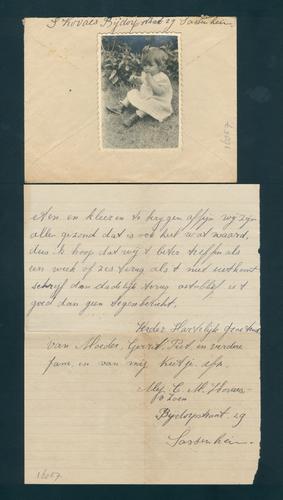 Kovacs Bijdorpstraat 29 Sassenheim
18057
eten en kleeren te krijgen affijn wij zijn
allen gezond dat is ook heel wat waard,
dus ik hoop dat wij 't beter treffen als
een week of zes terug als 't niet uitkomt
schrijf dan dadelijk terug astublief is 't
goed dan geen tegenbericht.
Verder Hartelijk gegroet
van Moeder, Gerrit, Piet, en verdere
fam, en van mij
Mej. C. M.
Bijdorpstraat 29
Sassenheim
18057